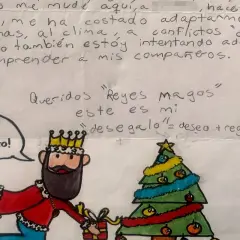 me mude aquí a hace
, me ha costado adaptarm
mas, al clima, a conflictos
o también estoy intentando ad
mprender a mis compañeros.
Queridos "Reyes magos"
este es mi
"desegalo" = deseo + reg
o!